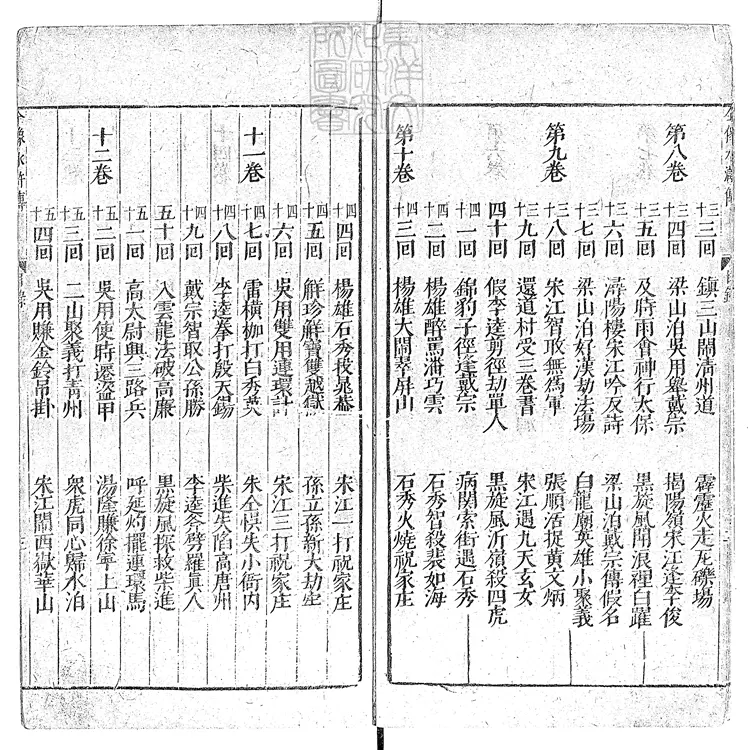 第八卷
三十三回 鎮三山鬧清州道 霹靂火走瓦礫場
三十四回 梁山泊吳用舉戴宗 揭陽嶺宋江逢李俊
三十五回 及時雨會神行太保 黑旋風鬧浪裡白躍
三十六回 潯陽樓宋江吟反詩 梁山泊戴宗傳假名
第九卷
三十七回 梁山泊好漢劫法場 白龍廟英雄小聚義
三十八回 宋江智取無為軍 張順活捉黃文炳
三十九回 還道村受三卷書 宋江遇九天玄女
四十回 假李逵剪徑劫單人 黑旋風沂嶺殺四虎
四十一回 錦豹子徑逢戴宗 病関索街遇石秀
四十二回 楊雄醉罵潘巧雲 石秀智殺裴如海
第十卷
四十三回 楊雄大鬧翠屏山 石秀火燒祝家庄
四十四回 楊雄石秀投晁蓋 宋江一打祝家庄
四十五回 觧珍觧寶雙越獄 孫立孫新大劫牢
四十六回 吳用雙用連環計 宋江三打祝家庄
十一卷
四十七回 雷横枷打白秀英 朱仝悞失小衙内
四十八回 李逵拳打殷天錫 柴進失陷高唐州
四十九回 戴宗智取公孫勝 李逵斧劈羅真人
五十回 入雲龍法破高廉 黒旋風探救柴進
五十一回 高太尉興三路兵 呼延灼擺連環馬
十二卷
五十二回 吳用使時遷盗甲 湯隆賺徐寧上山
五十三回 二山聚義打青州 衆虎同心歸水泊
五十四回 吳用賺金鈴吊掛 宋江鬧西嶽華山
全像水滸傳
目錄
三